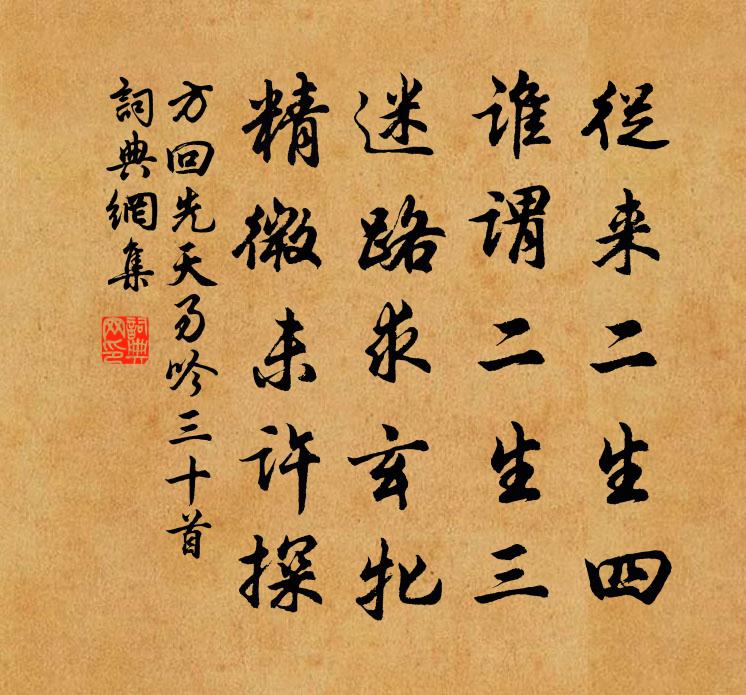 從来二生四
谁謂二生三
迷路求玄牝
精微未许探
方回先天易吟三十首
詞典網集
詞典
网印